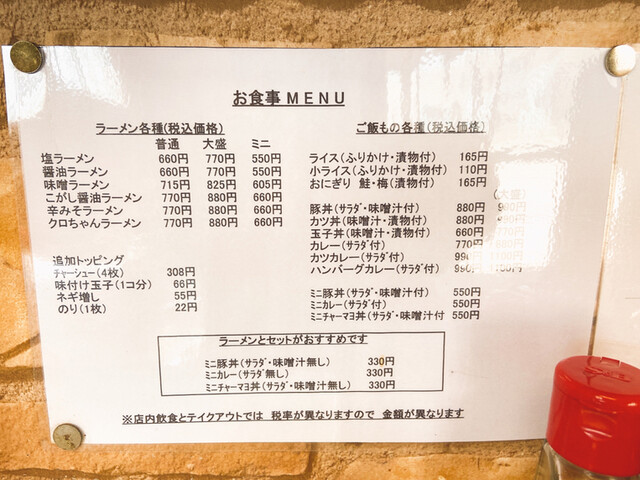 お食事MENU
ラーメン各種(税込価格)
普通 大盛 ミニ
塩ラーメン 660円 770円 550円
醤油ラーメン 660円 770円 550円
味噌ラーメン 715円 825円 605円
こがし醤油ラーメン 770円 880円 660円
辛みそラーメン 770円 880円 660円
クロちゃんラーメン 770円 880円 660円
追加トッピング
チャーシュー(4枚) 308円
味付け玉子(1コ分) 66円
ネギ増し 55円
のり(1枚) 22円
ご飯もの各種(税込価格)
ライス(ふりかけ・漬物付) 165円
小ライス(ふりかけ・漬物付) 110円
おにぎり 鮭・梅(漬物付) 165円
(大盛)
豚丼(サラダ・味噌汁付) 880円 990円
カツ丼(味噌汁・漬物付) 880円
玉子丼(味噌汁・漬物付) 660円
カレー(サラダ付) 770円
カツカレー(サラダ付) 990円 1100円
ハンバーグカレー(サラダ付) 990円 1100円
ミニ豚丼(サラダ・味噌汁付) 550円
ミニカレー(サラダ付) 550円
ミニチャーマヨ丼(サラダ・味噌汁付 550円
ラーメンとセットがおすすめです
ミニ豚丼(サラダ・味噌汁無し) 330円
ミニカレー(サラダ無し) 330円
ミニチャーマヨ丼(サラダ・味噌汁無し) 330円
※店内飲食とテイクアウトでは 税率が異なりますので 金額が異なります